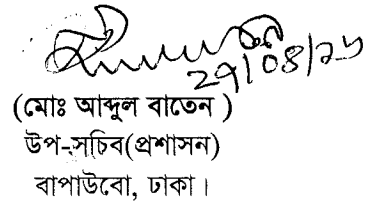 ২৭/০৪/২৬
(মোঃ আব্দুল বাতেন )
উপ-সচিব(প্রশাসন)
বাপাউবো, ঢাকা।